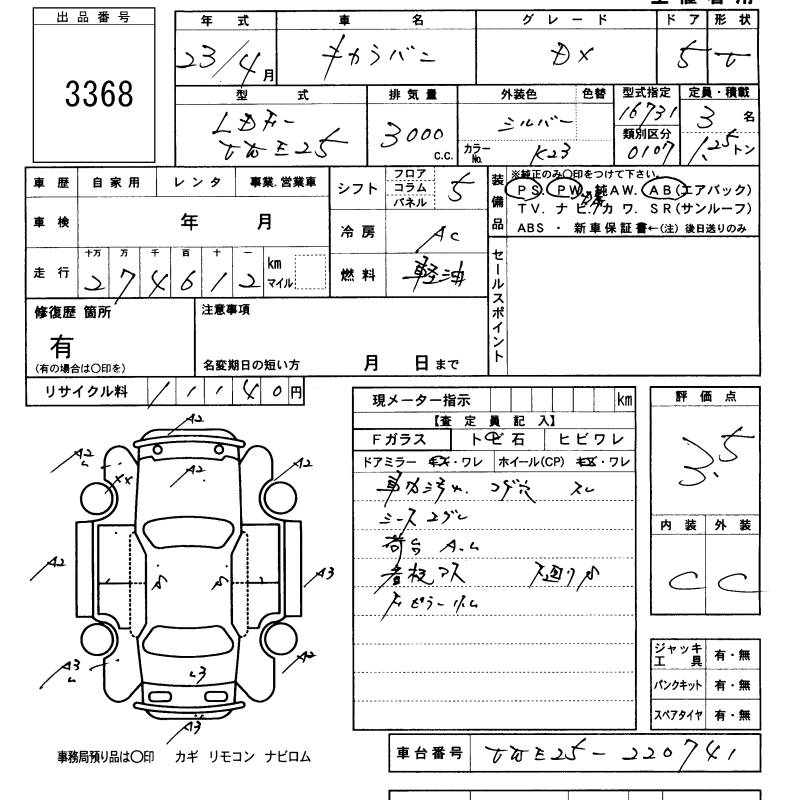 出品番号
3368
年式 車名 グレード ドア 形状
23/4月 キャラバン DX 5
型式 排気量 外装色 色替 型式指定 定員・積載
LDF-
VWE25 3000 C.C. シルバー カラーNo. K23 16731 類別区分 0107 3名 1.25トン
車歴 自家用 レンタ 事業.営業車
車検 年 月
走行 十万 万 千 百 十 一
274612 km マイル
シフト フロア コラム パネル 5
冷房 AC
燃料 軽油
装備品 ※純正のみ〇印をつけて下さい。
PS. PW. 純AW. AB(エアバック)
TV. ナビ. カワ. SR(サンルーフ)
ABS ・ 新車保証書←(注) 後日送りのみ
セールスポイント
修復歴 箇所
有
(有の場合は〇印を)
注意事項
名変期日の短い方 月 日まで
リサイクル料 11140円
現メーター指示 km
【査定員記入】
Fガラス トビ石 ヒビワレ
ドアミラー キズ・ワレ ホイール(CP) キズ・ワレ
シートコゲ
荷台 A.
下廻りサ
評価点
3.5
内装 外装
C C
ジャッキ工具 有・無
パンクキット 有・無
スペアタイヤ 有・無
A2
A2
A2
A2
A2
A3
A3
A2
A3
事務局預り品は〇印 カギ リモコン ナビロム
車台番号 VWE25-220741